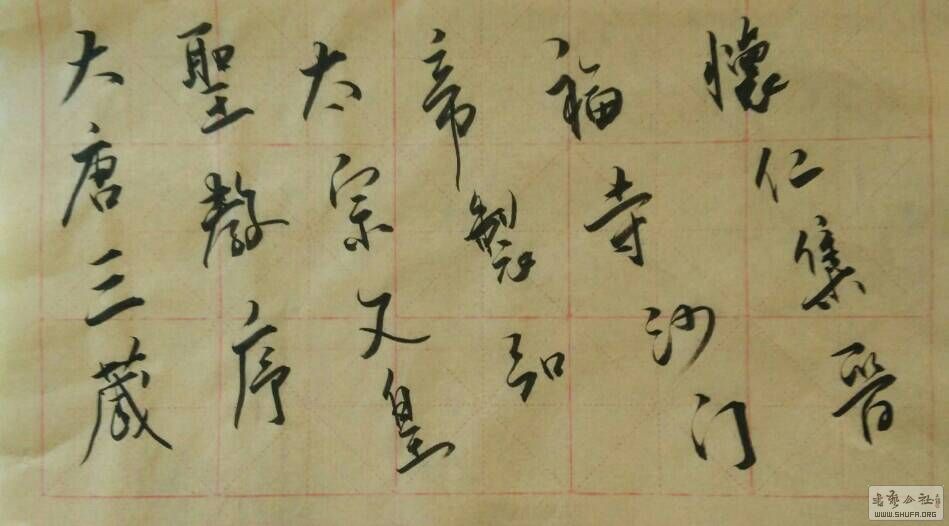 大唐三藏
聖教序
太宗文皇
帝製弘
福寺沙门
懷仁集晉
書藝公社
WWW.SHUFA.ORG